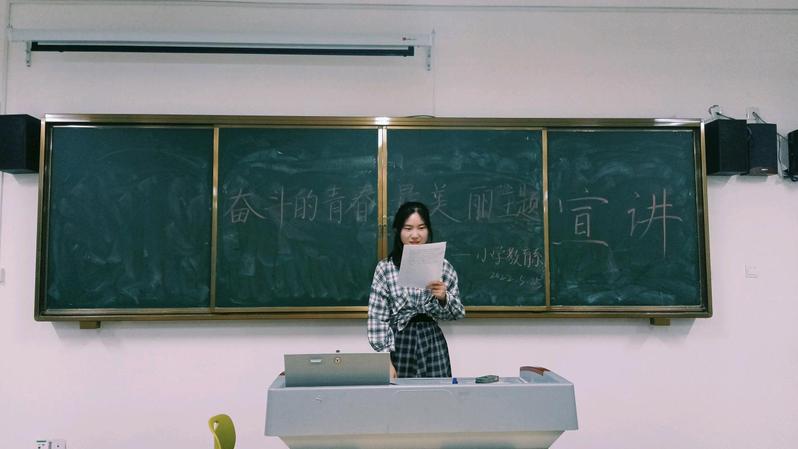 奋斗的青春最美丽主题宣讲
——小学教育系
2022.5.25